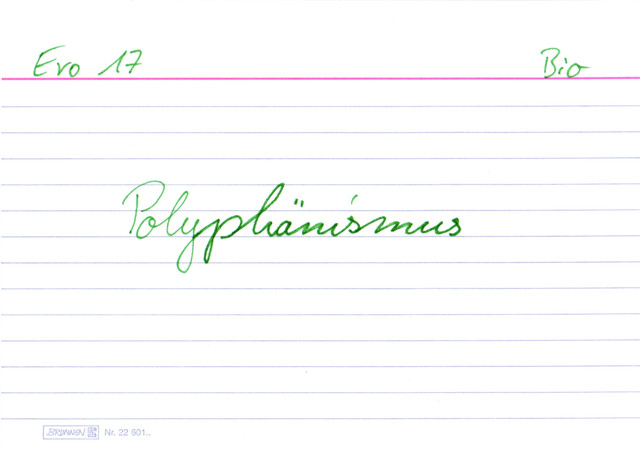 Evo 17 Bio
Polyphänismus
BRUNNEN Nr. 22 601..